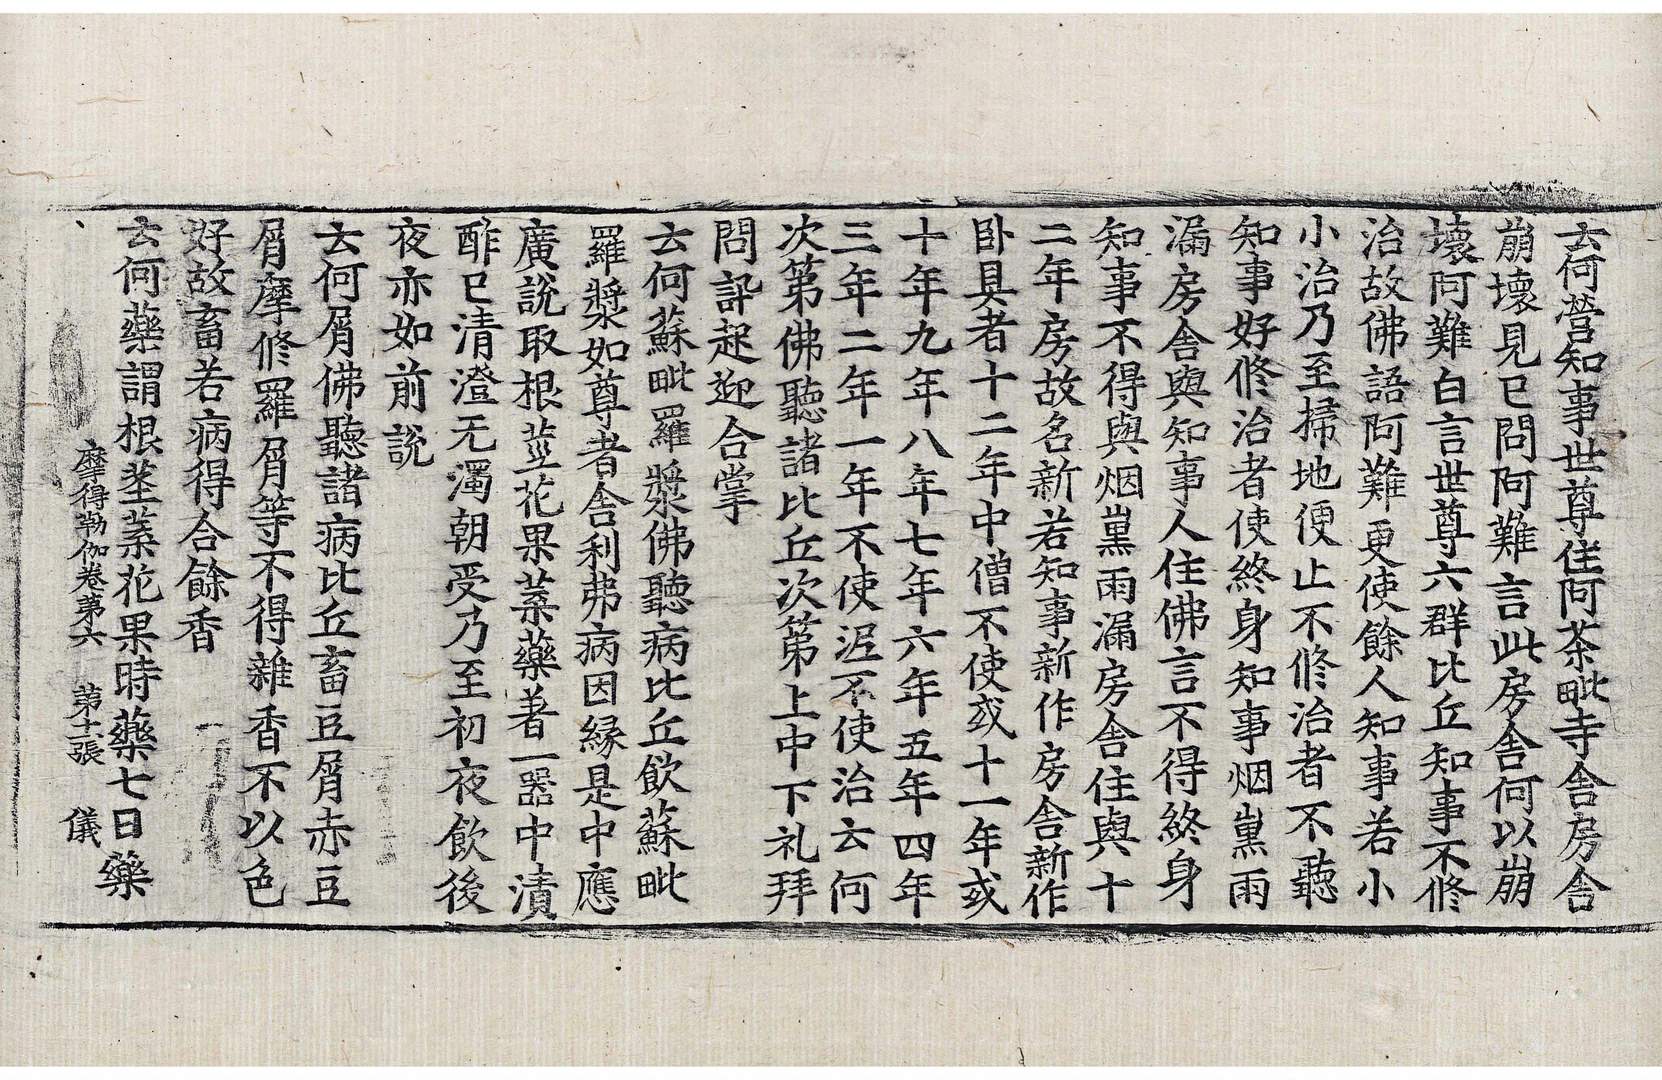 云何營知事世尊住阿茶毗寺舍房舍
崩壞見已問阿難言此房舍何以崩
壞阿難白言世尊六群比丘知事不修
治故佛語阿難更使餘人知事若小
小治乃至掃地便止不修治者不聽
知事好修治者使終身知事烟熏雨
漏房舍與知事人住佛言不得終身
知事不得與烟熏雨漏房舍住與十
二年房故名新若知事新作房舍新作
卧具者十二年中僧不使或十一年或
十年九年八年七年六年五年四年
三年二年一年不使泥不使治云何
次第佛聽諸比丘次第上中下礼拜
問訊起迎合掌
云何蘇毗羅漿佛聽病比丘飲蘇毗
羅漿如尊者舍利弗病因緣是中應
廣說取根莖花果葉藥著一器中漬
酢已清澄无濁朝受乃至初夜飲後
夜亦如前說
云何屑佛聽諸病比丘畜豆屑赤豆
屑摩修羅屑等不得雜香不以色
好故畜若病得合餘香
云何藥謂根莖葉花果時藥七日藥
摩得勒伽卷第六 第十一張 儀